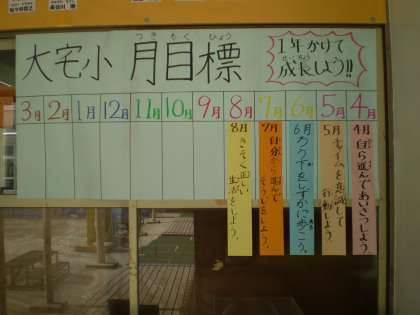 つき もく ひょう
大宅小 月目標
1年かけて
成長しよう!!
3月 2月 1月 12月 11月 10月 9月 8月 7月 6月 5月 4月
4月 自ら進んであいさつしよう。
5月 タイムを意識して行動しよう。
6月 ろう下をしずかに歩こう。
7月 自分から進んでそうじをしよう。
8月 きそく正しい生活をしよう。